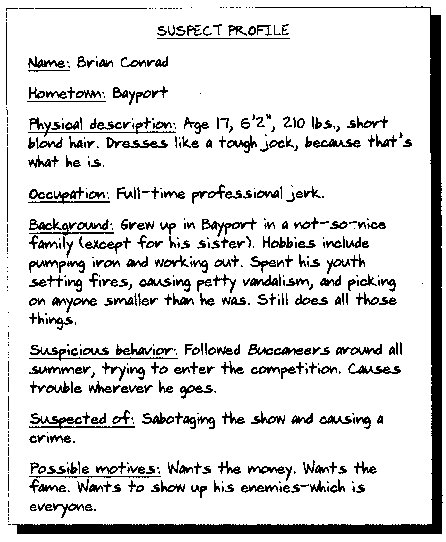 SUSPECT PROFILE
Name: Brian Conrad
Hometown: Bayport
Physical description: Age 17, 6'2", 210 lbs., short
blond hair. Dresses like a tough jock, because that's
what he is.
Occupation: Full-time professional jerk.
Background: Grew up in Bayport in a not-so-nice
family (except for his sister). Hobbies include
pumping iron and working out. Spent his youth
setting fires, causing petty vandalism, and picking
on anyone smaller than he was. Still does all those
things.
Suspicious behavior: Followed Buccaneers around all
summer, trying to enter the competition. Causes
trouble wherever he goes.
Suspected of: Sabotaging the show and causing a
crime.
Possible motives: Wants the money. Wants the
fame. Wants to show up his enemies-which is
everyone.